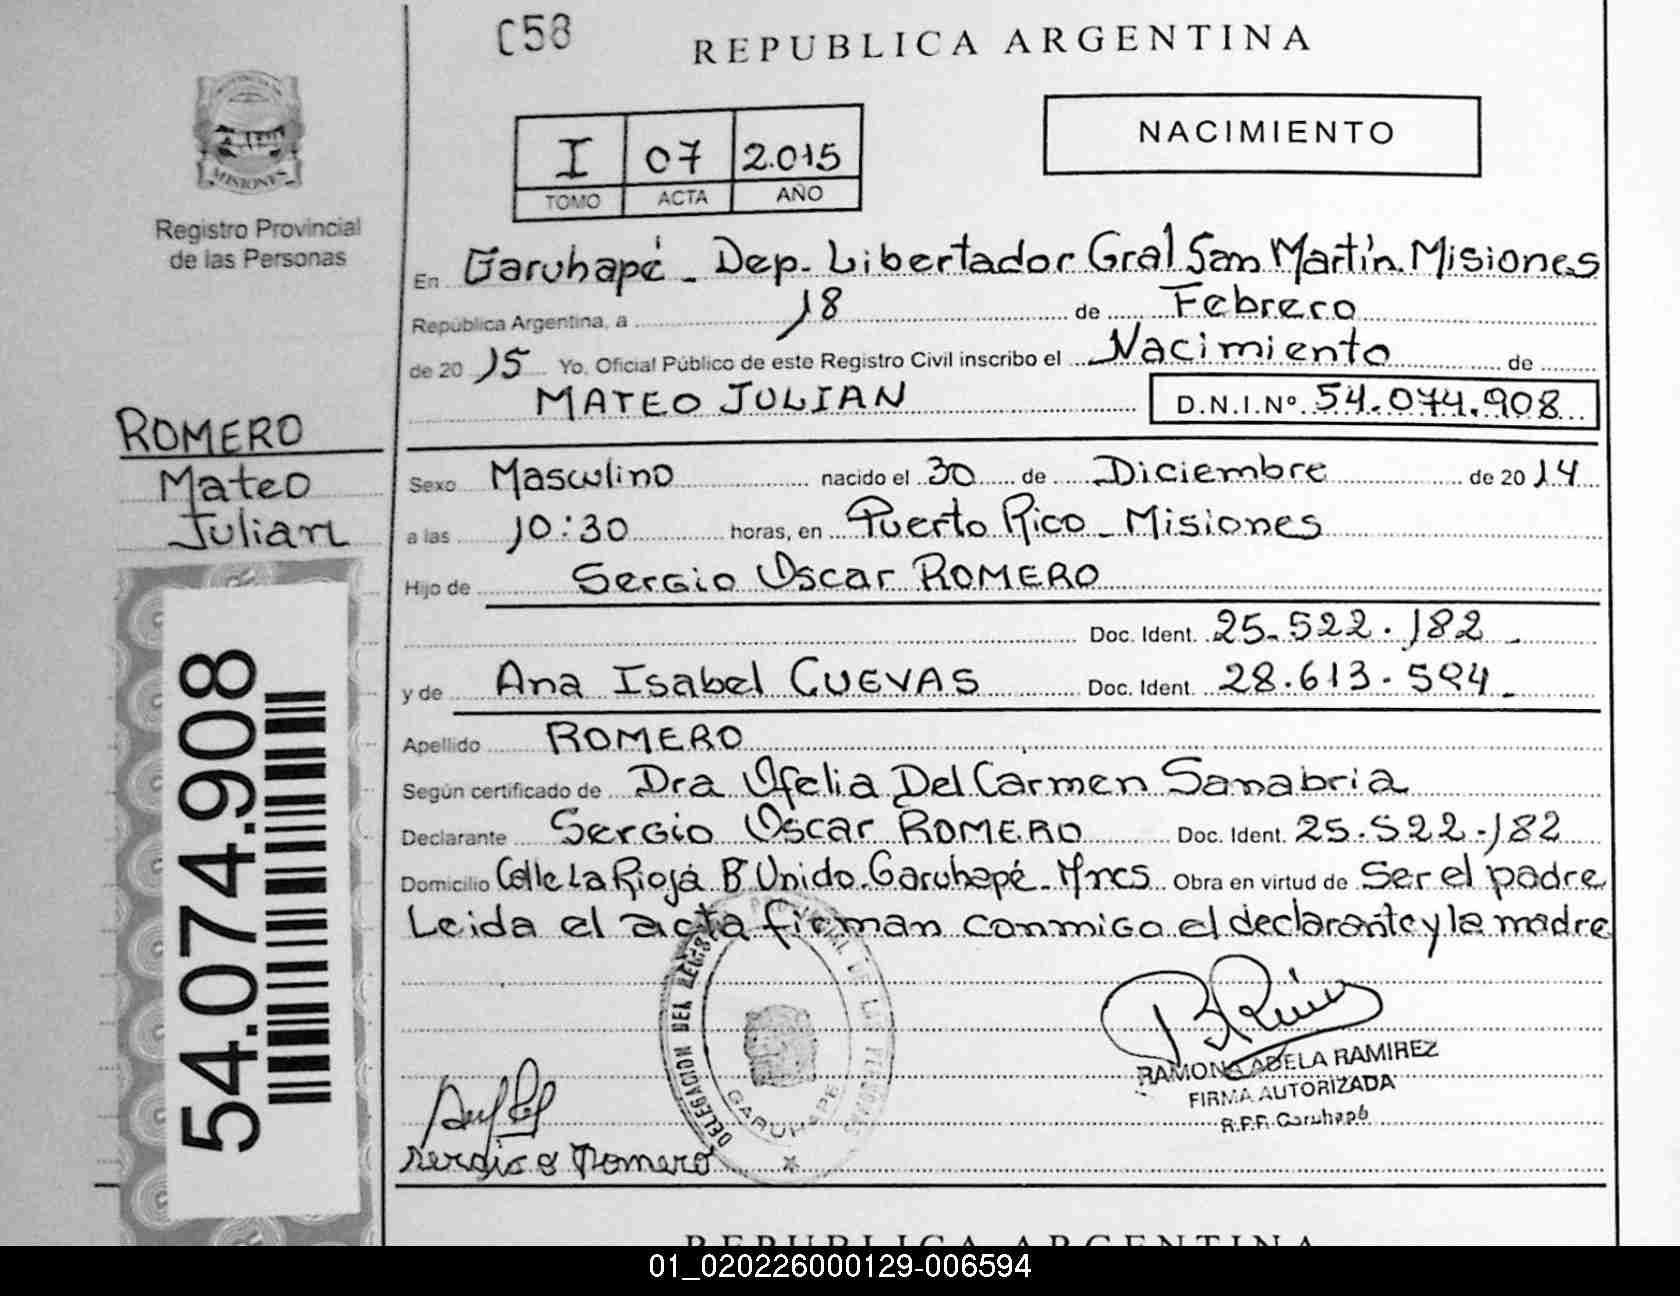 C58
REPUBLICA ARGENTINA
MISIONES
Registro Provincial
de las Personas
I 07 2.015
TOMO ACTA AÑO
NACIMIENTO
En Garuhapé - Dep. Libertador Gral San Martín. Misiones
República Argentina, a 18 de Febrero
de 2015 Yo, Oficial Público de este Registro Civil inscribo el Nacimiento de
MATEO JULIAN D.N.I.Nº 54.074.908
ROMERO
Mateo
Julian
Sexo Masculino nacido el 30 de Diciembre de 2014
a las 10:30 horas, en Puerto Rico - Misiones
Hijo de Sergio Oscar ROMERO
Doc. Ident. 25.522.182
y de Ana Isabel CUEVAS Doc. Ident. 28.613.594
Apellido ROMERO
Según certificado de Dra Ofelia Del Carmen Sanabria
Declarante Sergio Oscar ROMERO Doc. Ident. 25.522.182
Domicilio Calle La Rioja Bº Unido. Garuhapé - Mnes Obra en virtud de Ser el padre
Leida el acta firman conmigo el declarante y la madre
54.074.908
DELEGACION DEL REGISTRO PROVINCIAL DE LAS PERSONAS
GARUHAPE
RAMONA ADELA RAMIREZ
FIRMA AUTORIZADA
R.P.P. Garuhapé
Sergio O Romero
REPUBLICA ARGENTINA
01_020226000129-006594